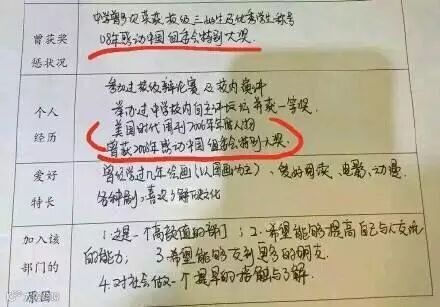 曾获奖
惩状况
中学曾多次荣获校级三好学生及优秀学生称号
08年感动中国组委会特别大奖
个人
经历
参加过校级辩论赛及校内演讲
举办过中学校内自主评坛并获一等奖
美国时代周刊2006年年度人物
曾获2008年感动中国组委会特别大奖
爱好
特长
曾经学过几年绘画(以国画为主)、爱好阅读、电影、动漫
各种剧、喜欢了解文化
加入该
部门的
原因
1.这是一个高颜值的部门;2.希望能够提高自己与人交流
的能力;3.希望能够交到更多的朋友
4.对社会做一个提早的接触与了解.